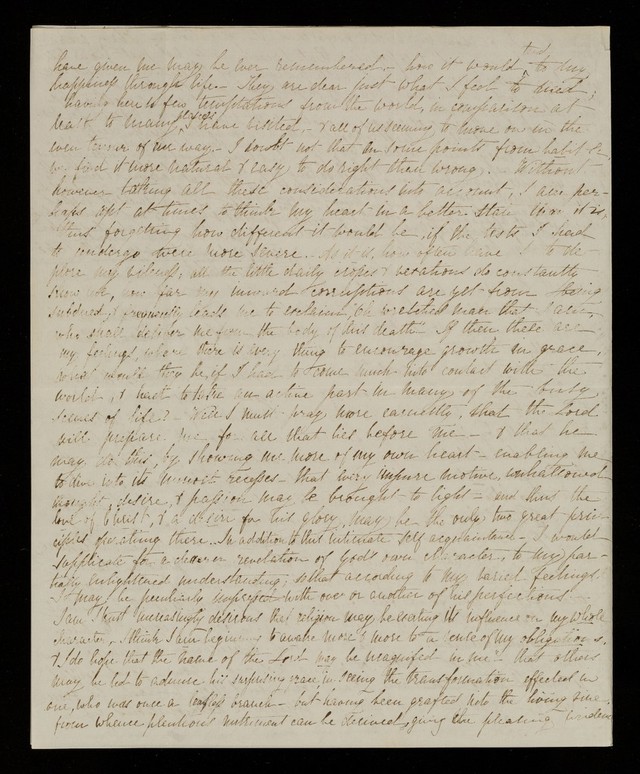 have given me may be ever remembered - how it would to my
happiness through life - They are dear just what I feel to need;
have here few temptations from the world, in comparison at
least to many places I have visited, & all of us seeming to move on in the
even tenour of our way. I doubt not that on some points from habit
we find it more natural & easy to do right than wrong. Without
however taking all these considerations into account, I am per-
haps apt at times to think my heart in a better state than it is,
thus forgetting how different it would be, if the tests I had
to undergo were more severe. As it is, how often have I to de-
plore my, all the little daily crosses & vexations do constantly
show me, how far my inward corruptions are yet from being
subdued, & frequently leads me to exclaim, "Oh wretched man that I am,
who shall deliver me from the body of this death" If then these are
my feelings, where there is every thing to encourage growth in grace,
what would they be, if I had to come much into contact with the
world, & had to take an active part in many of the busy
scenes of life? - Well I must pray more earnestly, that the Lord
will prepare me for all that lies before me - & that he
may do this, by showing me more of my own heart - enabling me
to dive into its inmost recesses - that every impure motive, unhallowed
thought, desire, & passion may be brought to light - and thus the
love of Christ, & a desire for his glory, may be the only two great prin-
ciples operating there. In addition to this intimate self acquaintance - I would
supplicate for a clearer revelation of God's own character, to my par-
tially enlightened understanding, so that according to my varied feelings
I may be peculiarly impressed with one or another of his perfections.
I am I trust increasingly desirous that religion may be exerting its influence on my whole
character, I think I am beginning to awake more & more to a sense of my obligations,
& I do hope that the name of the Lord may be magnified in me - that others
may be led to admire his surprising grace in seeing the transformation effected in
one, who was once a leafless branch - but having been grafted into the living vine
from whence plenteous nutriment can be derived, giving the pleasing eviden